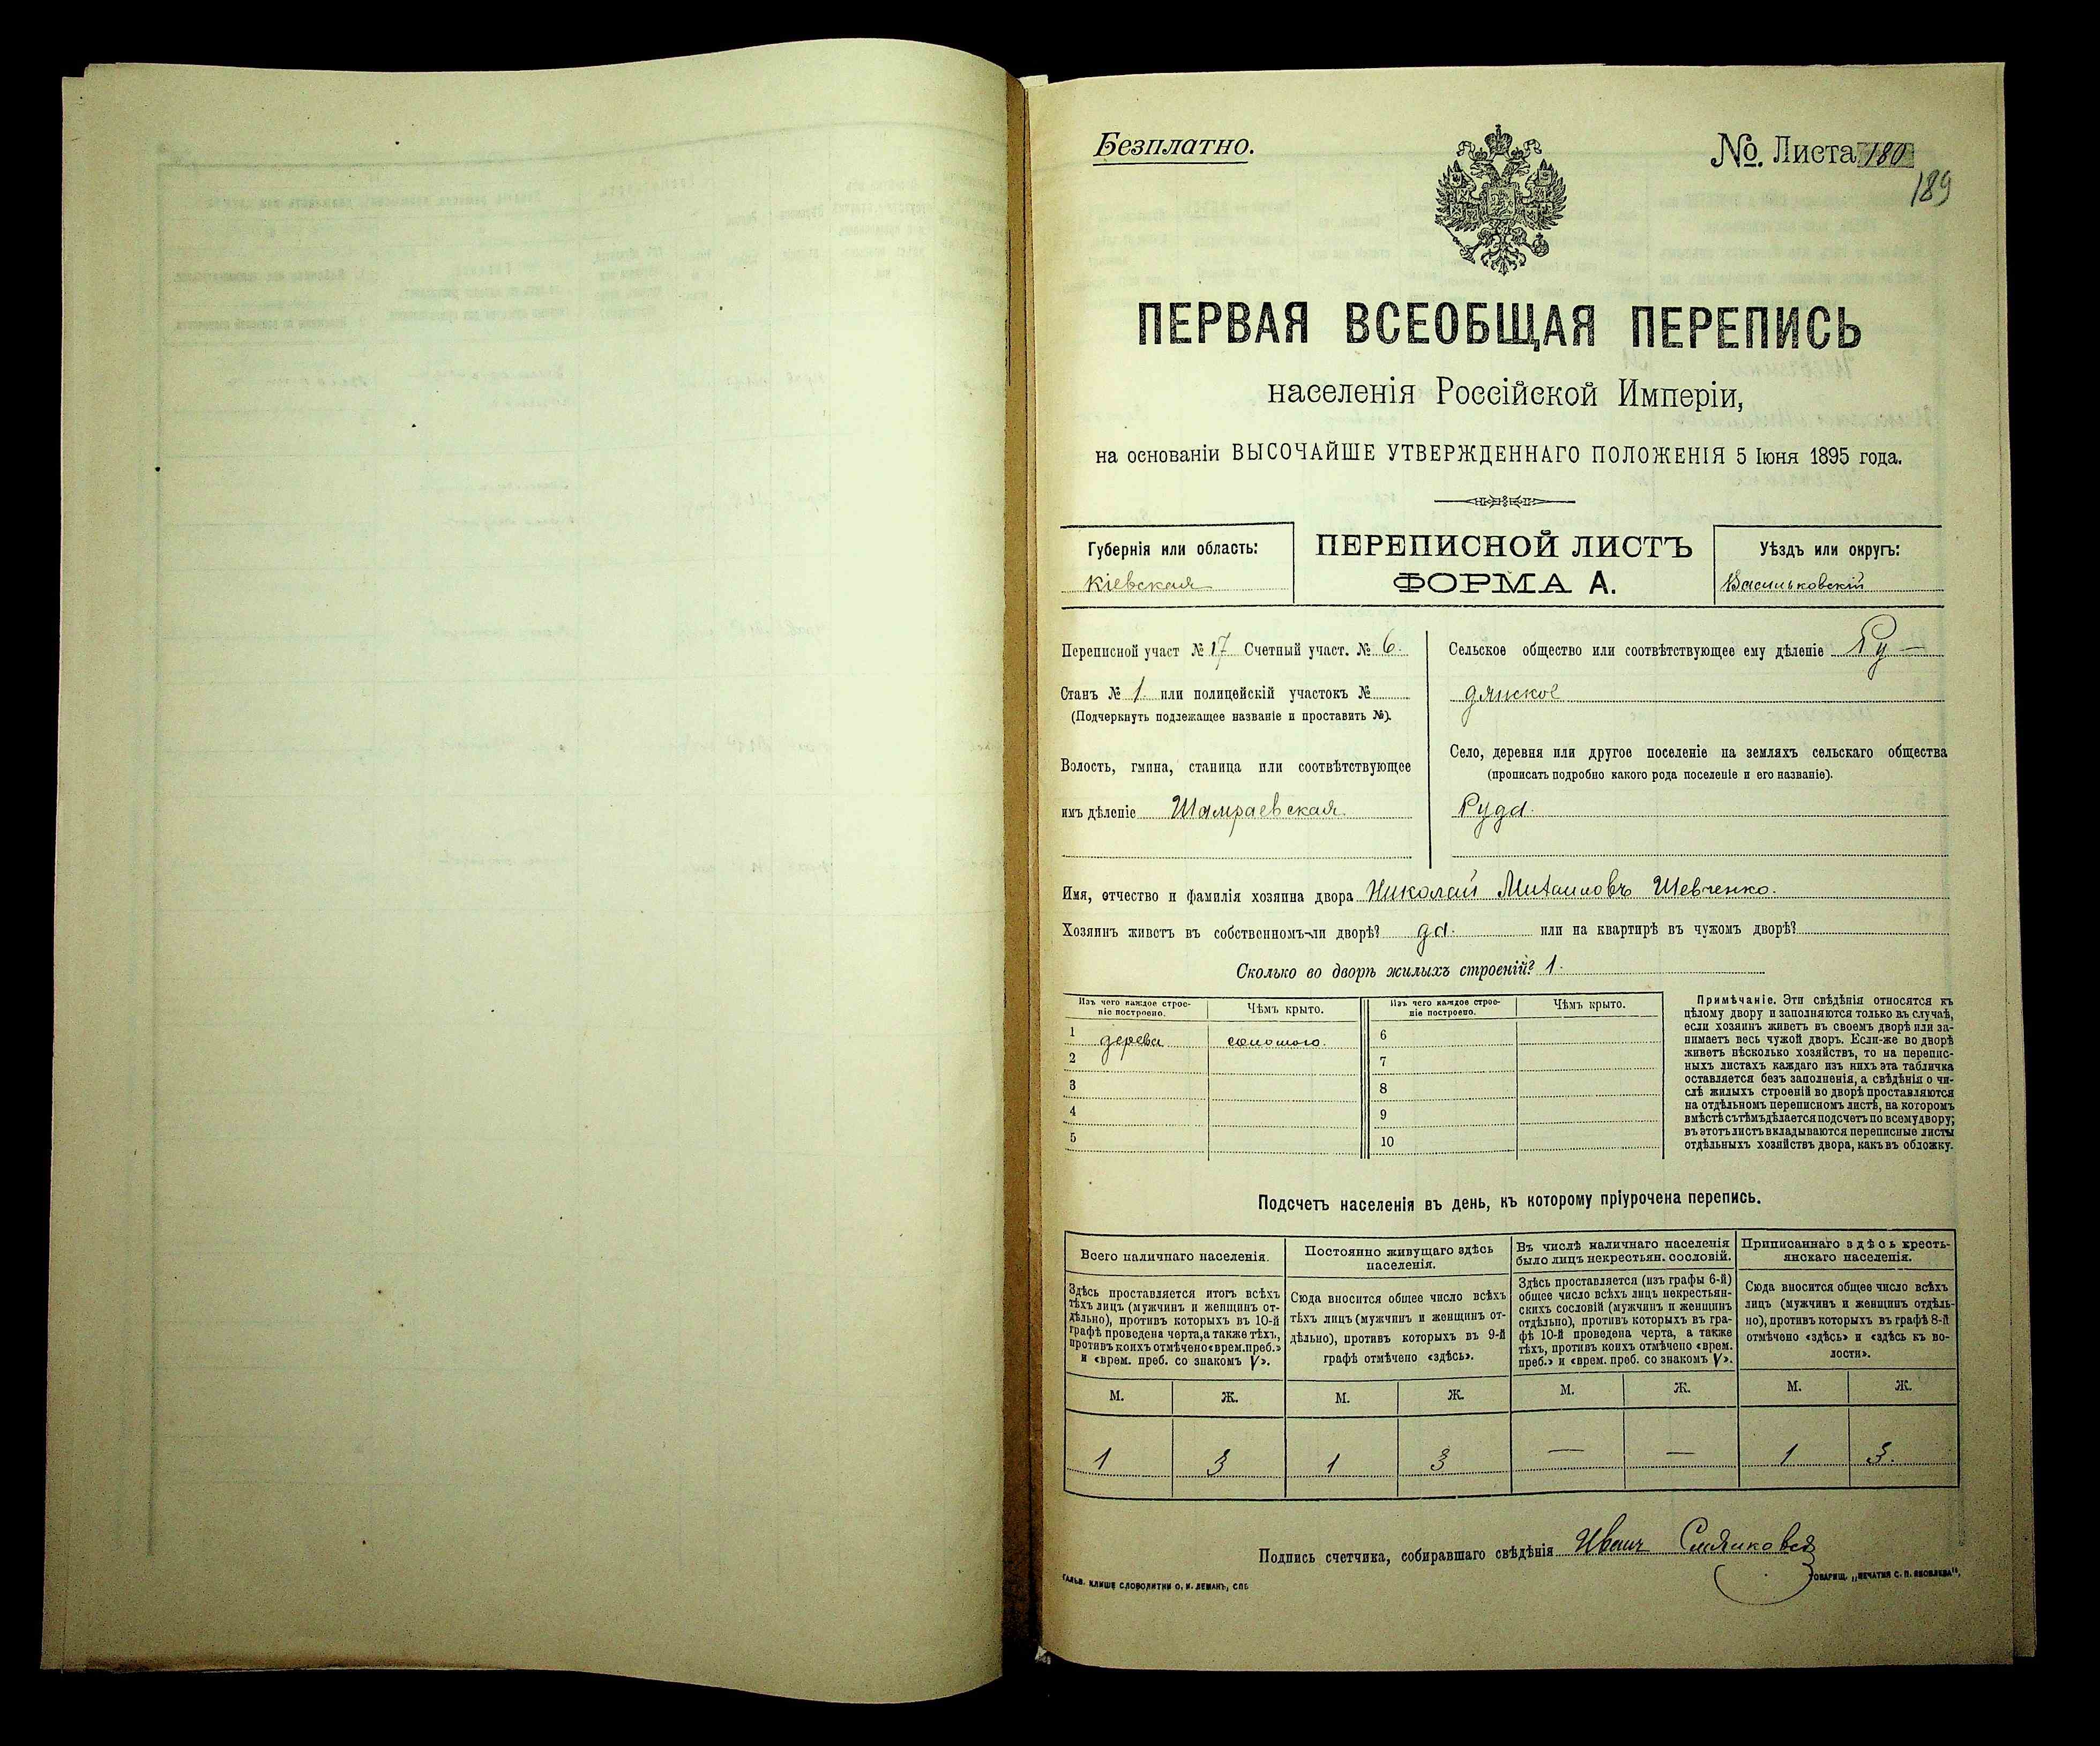 Безплатно.
№. Листа 180
189
ПЕРВАЯ ВСЕОБЩАЯ ПЕРЕПИСЬ
населенія Россійской Имперіи,
на основаніи ВЫСОЧАЙШЕ УТВЕРЖДЕННАГО ПОЛОЖЕНІЯ 5 Іюня 1895 года.
Губернія или область:
Кіевская
ПЕРЕПИСНОЙ ЛИСТЪ
ФОРМА А.
Уѣздъ или округъ:
Васильковскій
Переписной участ № 17 Счетный участ. № 6.
Станъ № 1. или полицейскій участокъ №
(Подчеркнуть подлежащее названіе и проставить №).
Волость, гмина, станица или соотвѣтствующее
имъ дѣленіе Шамраевская.
Сельское общество или соотвѣтствующее ему дѣленіе Ру-
дянское
Село, деревня или другое поселеніе на земляхъ сельскаго общества
(прописать подробно какого рода поселеніе и его названіе).
Руда.
Имя, отчество и фамилія хозяина двора Николай Михаиловъ Шевченко.
Хозяинъ живетъ въ собственномъ-ли дворѣ? да. или на квартирѣ въ чужомъ дворѣ?
Сколько во дворѣ жилыхъ строеній? 1.
Изъ чего каждое строе-
ніе построено.
Чѣмъ крыто.
Изъ чего каждое строе-
ніе построено.
Чѣмъ крыто.
1 дерева соломою.
2
3
4
5
6
7
8
9
10
Примѣчаніе. Эти свѣдѣнія относятся къ
цѣлому двору и заполняются только въ случаѣ,
если хозяинъ живетъ въ своемъ дворѣ или за-
нимаетъ весь чужой дворъ. Если-же во дворѣ
живетъ нѣсколько хозяйствъ, то на перепис-
ныхъ листахъ каждаго изъ нихъ эта табличка
оставляется безъ заполненія, а свѣдѣнія о чи-
слѣ жилыхъ строеній во дворѣ проставляются
на отдѣльномъ переписномъ листѣ, на которомъ
вмѣстѣ съ тѣмъ дѣлается подсчетъ по всему двору;
въ этотъ листъ вкладываются переписные листы
отдѣльныхъ хозяйствъ двора, какъ въ обложку.
Подсчетъ населенія въ день, къ которому пріурочена перепись.
Всего наличнаго населенія.
Здѣсь проставляется итогъ всѣхъ
тѣхъ лицъ (мужчинъ и женщинъ от-
дѣльно), противъ которыхъ въ 10-й
графѣ проведена черта, а также тѣхъ,
противъ коихъ отмѣчено «врем. преб.»
и «врем. преб. со знакомъ V».
Постоянно живущаго здѣсь
населенія.
Сюда вносится общее число всѣхъ
тѣхъ лицъ (мужчинъ и женщинъ от-
дѣльно), противъ которыхъ въ 9-й
графѣ отмѣчено «здѣсь».
Въ числѣ наличнаго населенія
было лицъ некрестьян. сословій.
Здѣсь проставляется (изъ графы 6-й)
общее число всѣхъ лицъ некрестьян-
скихъ сословій (мужчинъ и женщинъ
отдѣльно), противъ которыхъ въ гра-
фѣ 10-й проведена черта, а также
тѣхъ, противъ коихъ отмѣчено «врем.
преб.» и «врем. преб. со знакомъ V».
Приписаннаго здѣсь кресть-
янскаго населенія.
Сюда вносится общее число всѣхъ
лицъ (мужчинъ и женщинъ отдѣль-
но), противъ которыхъ въ графѣ 8-й
отмѣчено «здѣсь» и «здѣсь къ во-
лости».
М. Ж. М. Ж. М. Ж. М. Ж.
1 3 1 3 — — 1 3.
Подпись счетчика, собиравшаго свѣдѣнія Иванъ
ГАЛЬВ. КЛИШЕ СЛОВОЛИТНИ О. И. ЛЕМАНЪ, СПБ
ТОВАРИЩ. „ПЕЧАТНЯ С. П. ЯКОВЛЕВА“,